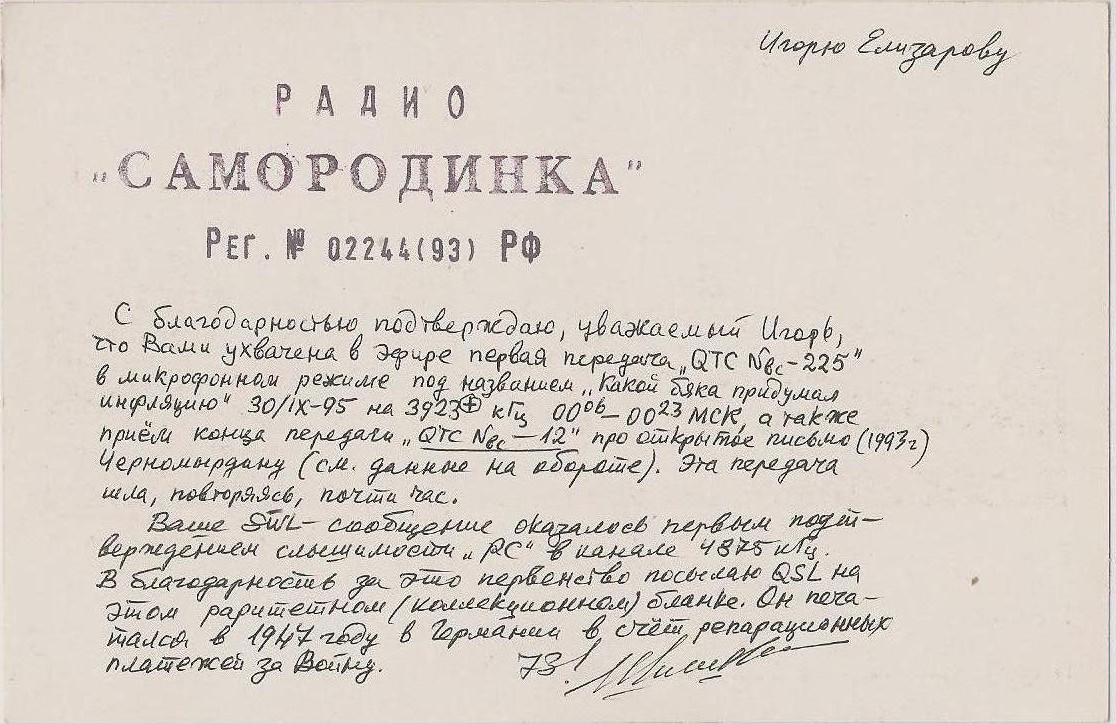 Игорю Елизарову
РАДИО
"САМОРОДИНКА"
РЕГ. № 02244(93) РФ
С благодарностью подтверждаю, уважаемый Игорь,
что Вами ухвачена в эфире первая передача „QTC Nвс-225"
в микрофонном режиме под названием „Какой бяка придумал
инфляцию" 30/IX-95 на 3923⊕ кГц 00⁰⁶-00²³ МСК, а также
приём конца передачи „QTC Nвс-12" про открытое письмо (1993г)
Черномырдину (см. данные на обороте). Эта передача
шла, повторяясь, почти час.
Ваше SWL-сообщение оказалось первым подт-
верждением слышимости „РС" в канале 4875 кГц.
В благодарность за это первенство посылаю QSL на
этом раритетном (коллекционном) бланке. Он печа-
тался в 1947 году в Германии в счёт репарационных
платежей за Войну. 73!